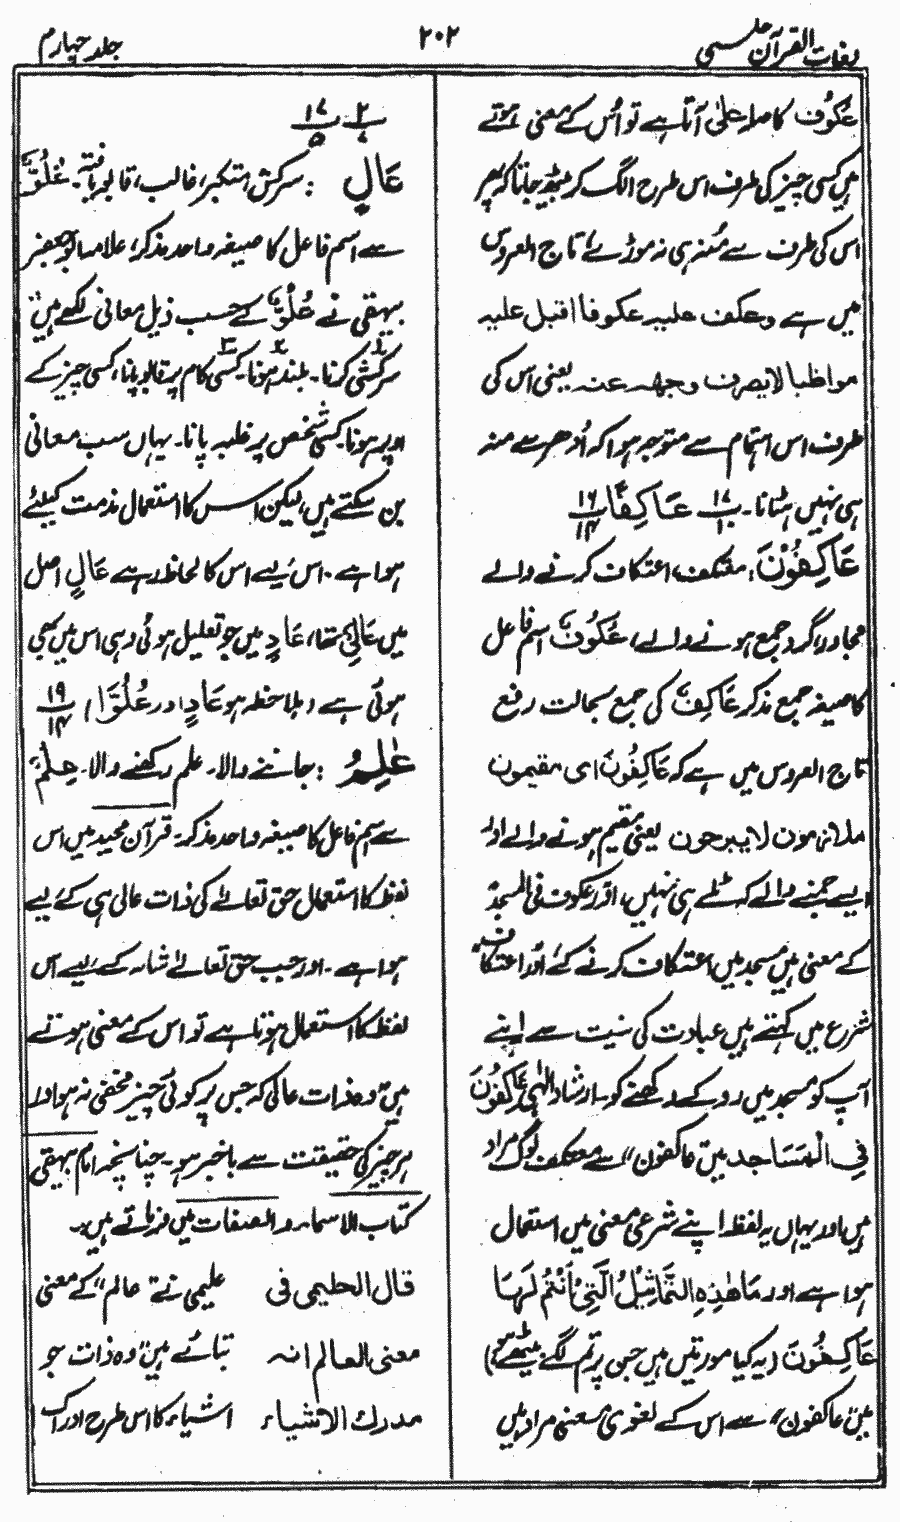 لغات القرآن جلد
۲۰۲
جلد چہارم
عُكُوْف کا صلہ علیٰ آتا ہے تو اُس کے معنی ہوتے
ہیں کسی چیز کی طرف اس طرح الگ کر بیٹھ جانا کہ پھر
اس کی طرف سے مُنہ ہی نہ موڑ سکے تاج العروس
میں ہے وعكف عليه عكوفا اقبل عليه
مواظبا لا يصرف وجهه عنه یعنی اس کی
طرف اس اہتمام سے متوجہ ہوا کہ اُدھر سے منہ
ہی نہیں ہٹاتا۔ ۱۷/۱ عَاكِفًا ۱۶/۱۴
عَاكِفُوْنَ، معتکف، اعتکاف کرنے والے
مجاور، گرد جمع ہونے والے، عُكُوْف سے اسم فاعل
کا صیغہ جمع مذکر عَاكِف کی جمع بحالت رفع
تاج العروس میں ہے کہ عَاكِفُوْنَ ای مقیمون
ملازمون لا يبرحون یعنی مقیم ہونے والے اور
ایسے جمنے والے کہ ٹلے ہی نہیں، اور عكوف فی المسجد
کے معنی ہیں مسجد میں اعتکاف کرنے کے، اور اعتکاف
شرع میں کہتے ہیں عبادت کی نیت سے اپنے
آپ کو مسجد میں روکے رکھنے کو۔ ارشاد الٰہی عَاكِفُوْنَ
فِي الْمَسَاجِد میں عاکفون" سے معتکف لوگ مراد
ہیں، اور یہاں یہ لفظ اپنے شرعی معنی میں استعمال
ہوا ہے اور مَا هٰذِهِ التَّمَاثِيْلُ الَّتِيْ اَنْتُمْ لَهَا
عَاكِفُوْنَ (یہ کیا مورتیں ہیں جن پر تم لگے بیٹھے ہو)
میں عاکفون" سے اس کے لغوی معنی مراد ہیں
۱۷/۵ ۲/۷
عَالٍ : سرکش، متکبر، غالب، قابو یافتہ۔ عُلُوّ
سے اسم فاعل کا صیغہ واحد مذکر، علامہ ابو جعفر
بیہقی نے عُلُوّ کے حسب ذیل معانی لکھے ہیں:
سرکشی کرنا۔ بلند ہونا۔ کسی کام پر قابو پانا، کسی چیز کے
اوپر ہونا۔ کسی شخص پر غلبہ پانا۔ یہاں سب معانی
بن سکتے ہیں، لیکن اس کا استعمال مذمت کیلئے
ہوا ہے۔ اس لیے اس کا لحاظ رہے عَالٍ اصل
میں عَالِيٌ تھا، عَادٍ میں جو تعلیل ہوئی وہی اس میں بھی
ہوئی ہے (ملاحظہ ہو عَادٍ اور عُلُوًّا) ۱۹/۱۴
عٰلِمُ : جاننے والا۔ علم رکھنے والا۔ عِلْمٌ
سے اسم فاعل کا صیغہ واحد مذکر۔ قرآن مجید میں اس
لفظ کا استعمال حق تعالےٰ کی ذات عالی ہی کے لیے
ہوا ہے۔ اور جب حق تعالےٰ شانہ کے لیے اس
لفظ کا استعمال ہوتا ہے تو اس کے معنی ہوتے
ہیں "وہ ذات عالی کہ جس پر کوئی چیز مخفی نہ ہو اور
ہر چیز کی حقیقت سے باخبر ہو۔ چنانچہ امام بیہقی
کتاب الاسماء والصفات میں فرماتے ہیں۔
قال الحليمى فى حلیمی نے "عالم" کے معنی
معنى العالم انه بتائے ہیں "وہ ذات جو
مدرك الاشياء اشیاء کا اس طرح ادراک